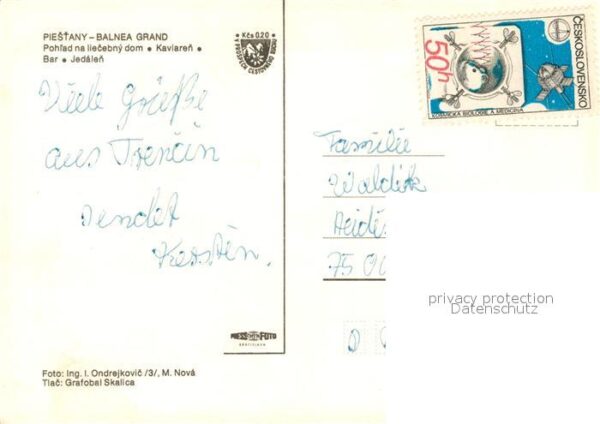 PIEŠŤANY – BALNEA GRAND
Pohľad na liečebný dom • Kaviareň •
Bar • Jedáleň
Kčs 0,20
V PROSPECH CESTOVNÉHO RUCHU
50h
ČESKOSLOVENSKO
KOSMICKÁ BIOLOGIE A MEDICÍNA
Viele Grüße
aus Trenčin
sendet
Kerstin.
Familie
75
D
privacy protection
Datenschutz
PRESSFOTO
BRATISLAVA
Foto: Ing. I. Ondrejkovič /3/, M. Nová
Tlač: Grafobal Skalica